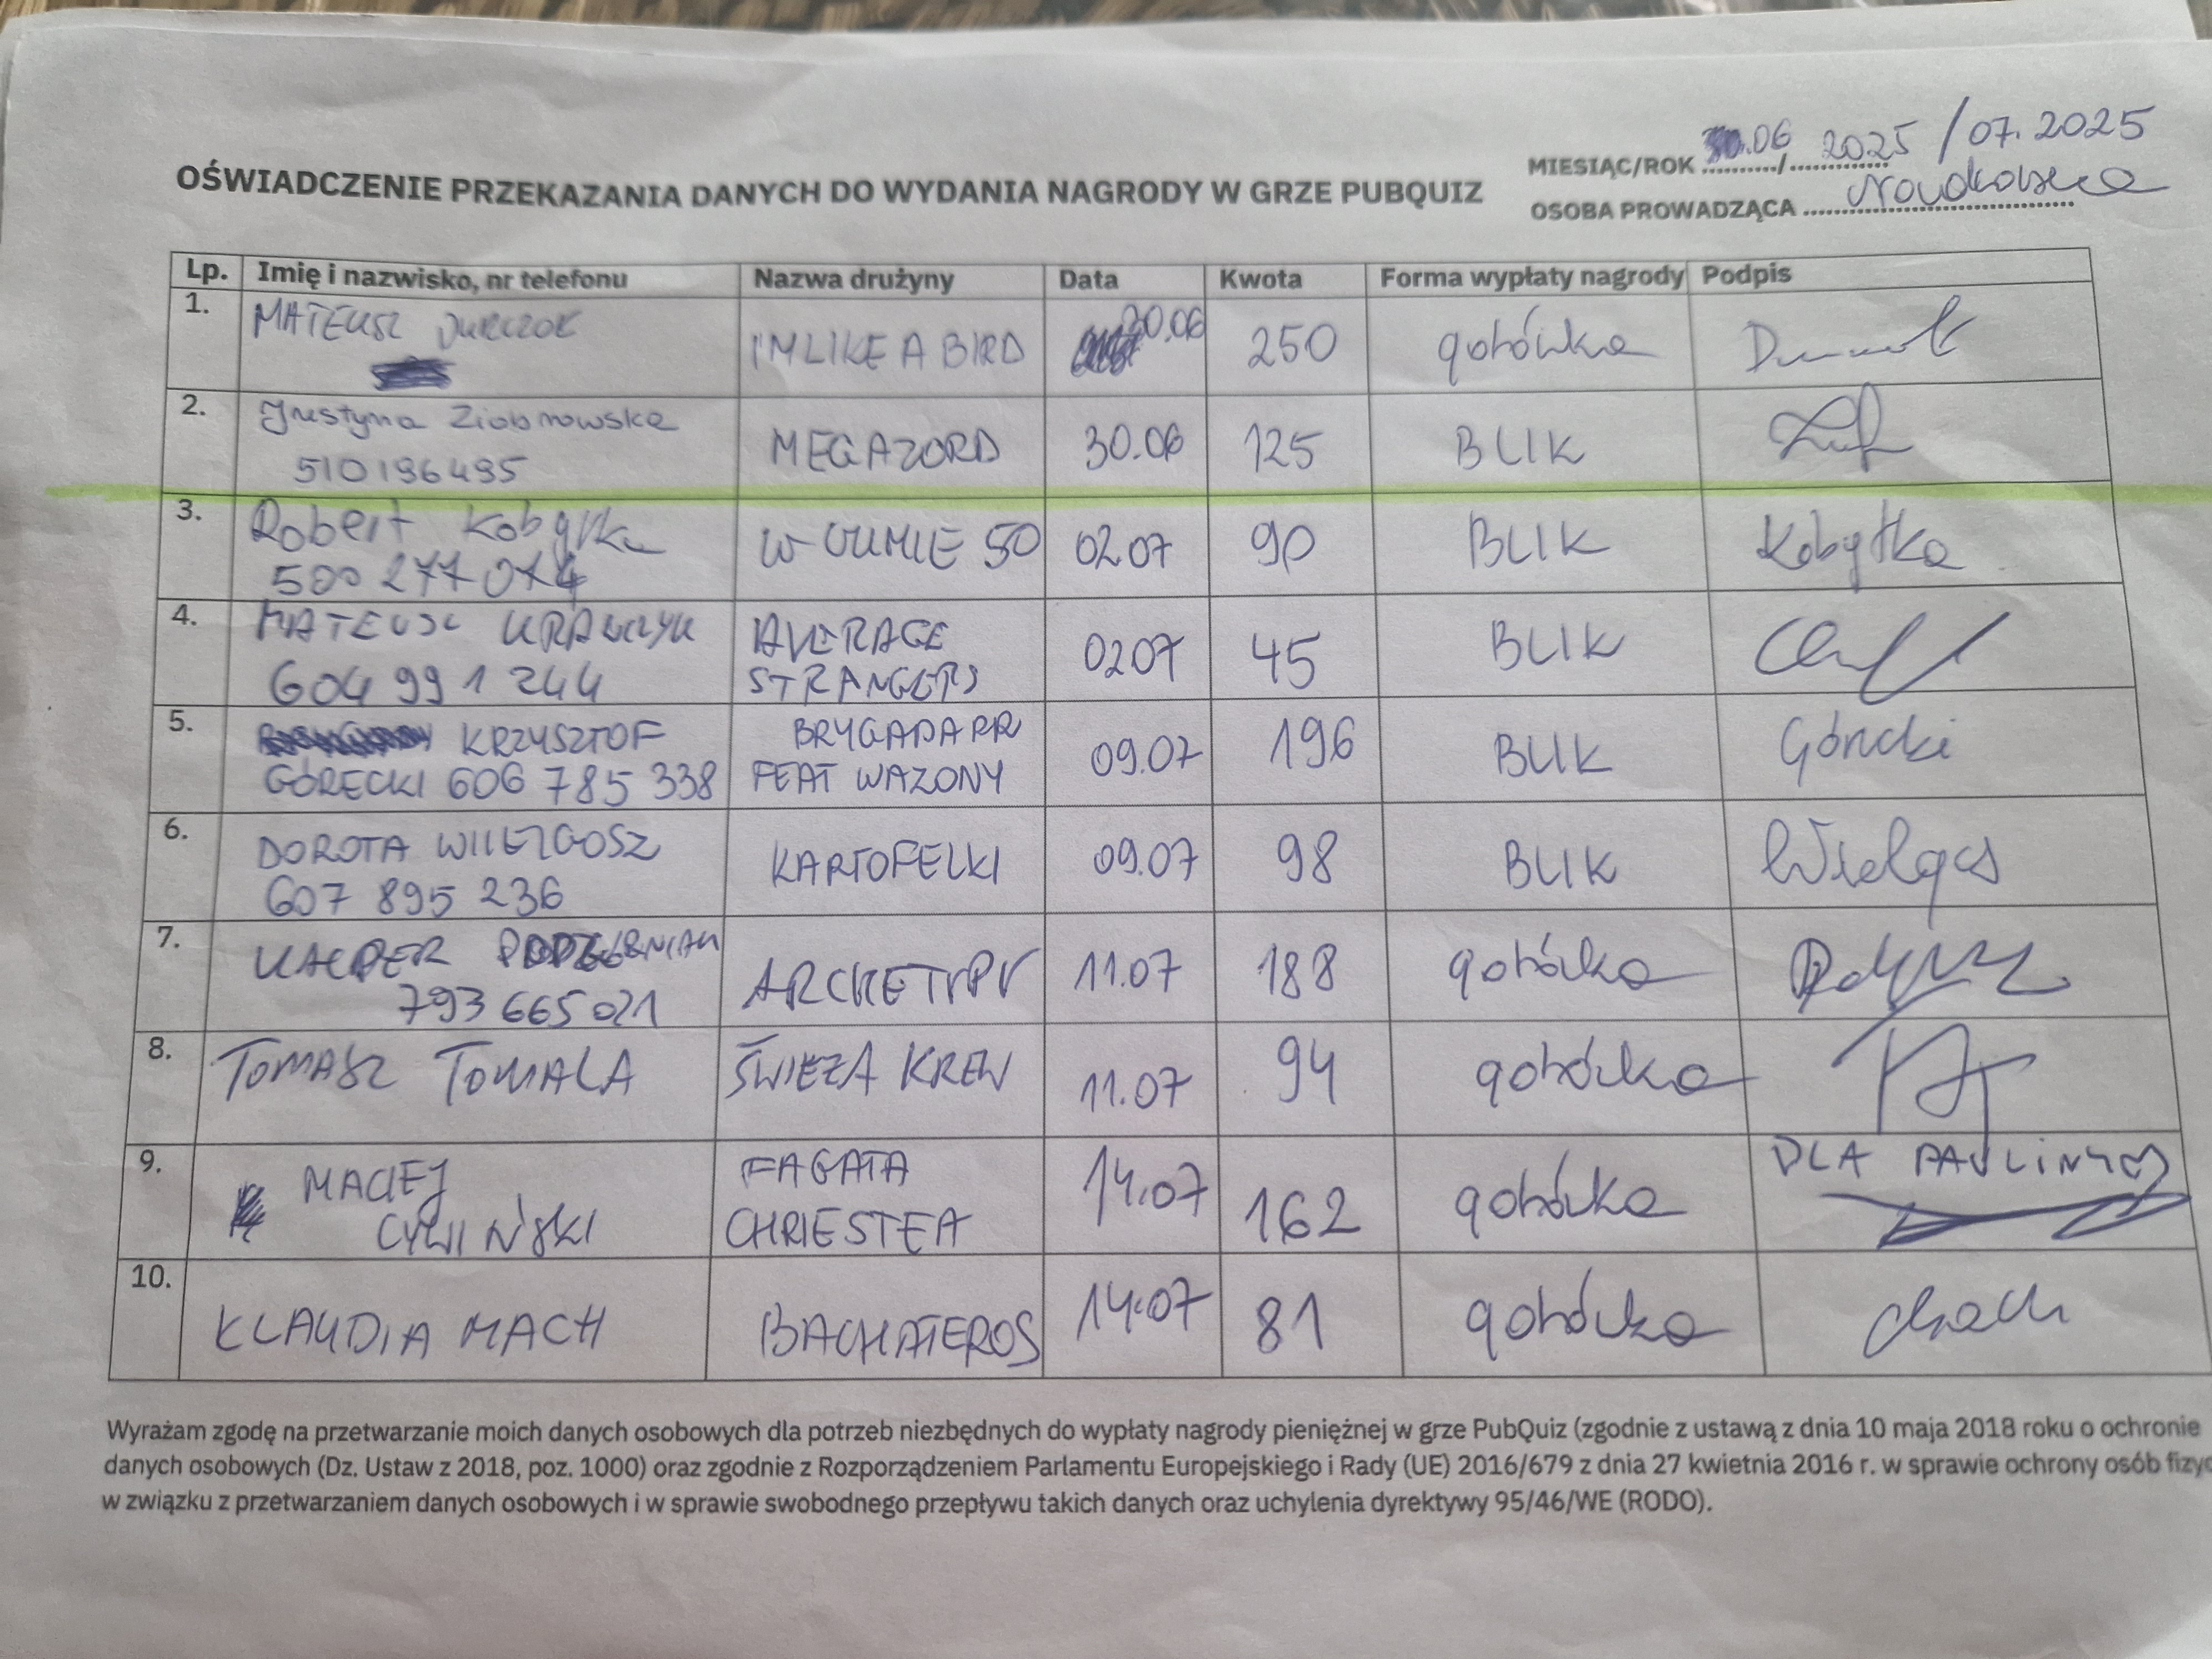 OŚWIADCZENIE PRZEKAZANIA DANYCH DO WYDANIA NAGRODY W GRZE PUBQUIZ
MIESIĄC/ROK .06 / 2025 / 07.2025
OSOBA PROWADZĄCA
Lp. Imię i nazwisko, nr telefonu Nazwa drużyny Data Kwota Forma wypłaty nagrody Podpis
1. MATEUSZ JURCZOK I'M LIKE A BIRD 30.06 250 gotówka
2. Justyna Ziobrowska MEGAZORD 30.06 125 BLIK
510196495
3. Robert Kobyłka W GUMIE 50 02.07 90 BLIK Kobyłka
500 277 074
4. MATEUSZ KRAWCZYK AVERAGE 02.07 45 BLIK
604 991 244 STRANGERS
5. KRZYSZTOF BRYGADA RR 09.07 196 BLIK Górecki
GÓRECKI 606 785 338 FEAT WAZONY
6. DOROTA WIELGOSZ KARTOFELKI 09.07 98 BLIK
607 895 236
7. KACPER ARCHETYPY 11.07 188 gotówka
793 665 021
8. TOMASZ TOMALA ŚWIEŻA KREW 11.07 94 gotówka
9. MACIEJ FAGATA 14.07 162 gotówka DLA PAULINY
CYWIŃSKI CHRIESTEA
10. KLAUDIA MACH BACHATEROS 14.07 81 gotówka Mach
Wyrażam zgodę na przetwarzanie moich danych osobowych dla potrzeb niezbędnych do wypłaty nagrody pieniężnej w grze PubQuiz (zgodnie z ustawą z dnia 10 maja 2018 roku o ochronie
danych osobowych (Dz. Ustaw z 2018, poz. 1000) oraz zgodnie z Rozporządzeniem Parlamentu Europejskiego i Rady (UE) 2016/679 z dnia 27 kwietnia 2016 r. w sprawie ochrony osób fizyc
w związku z przetwarzaniem danych osobowych i w sprawie swobodnego przepływu takich danych oraz uchylenia dyrektywy 95/46/WE (RODO).